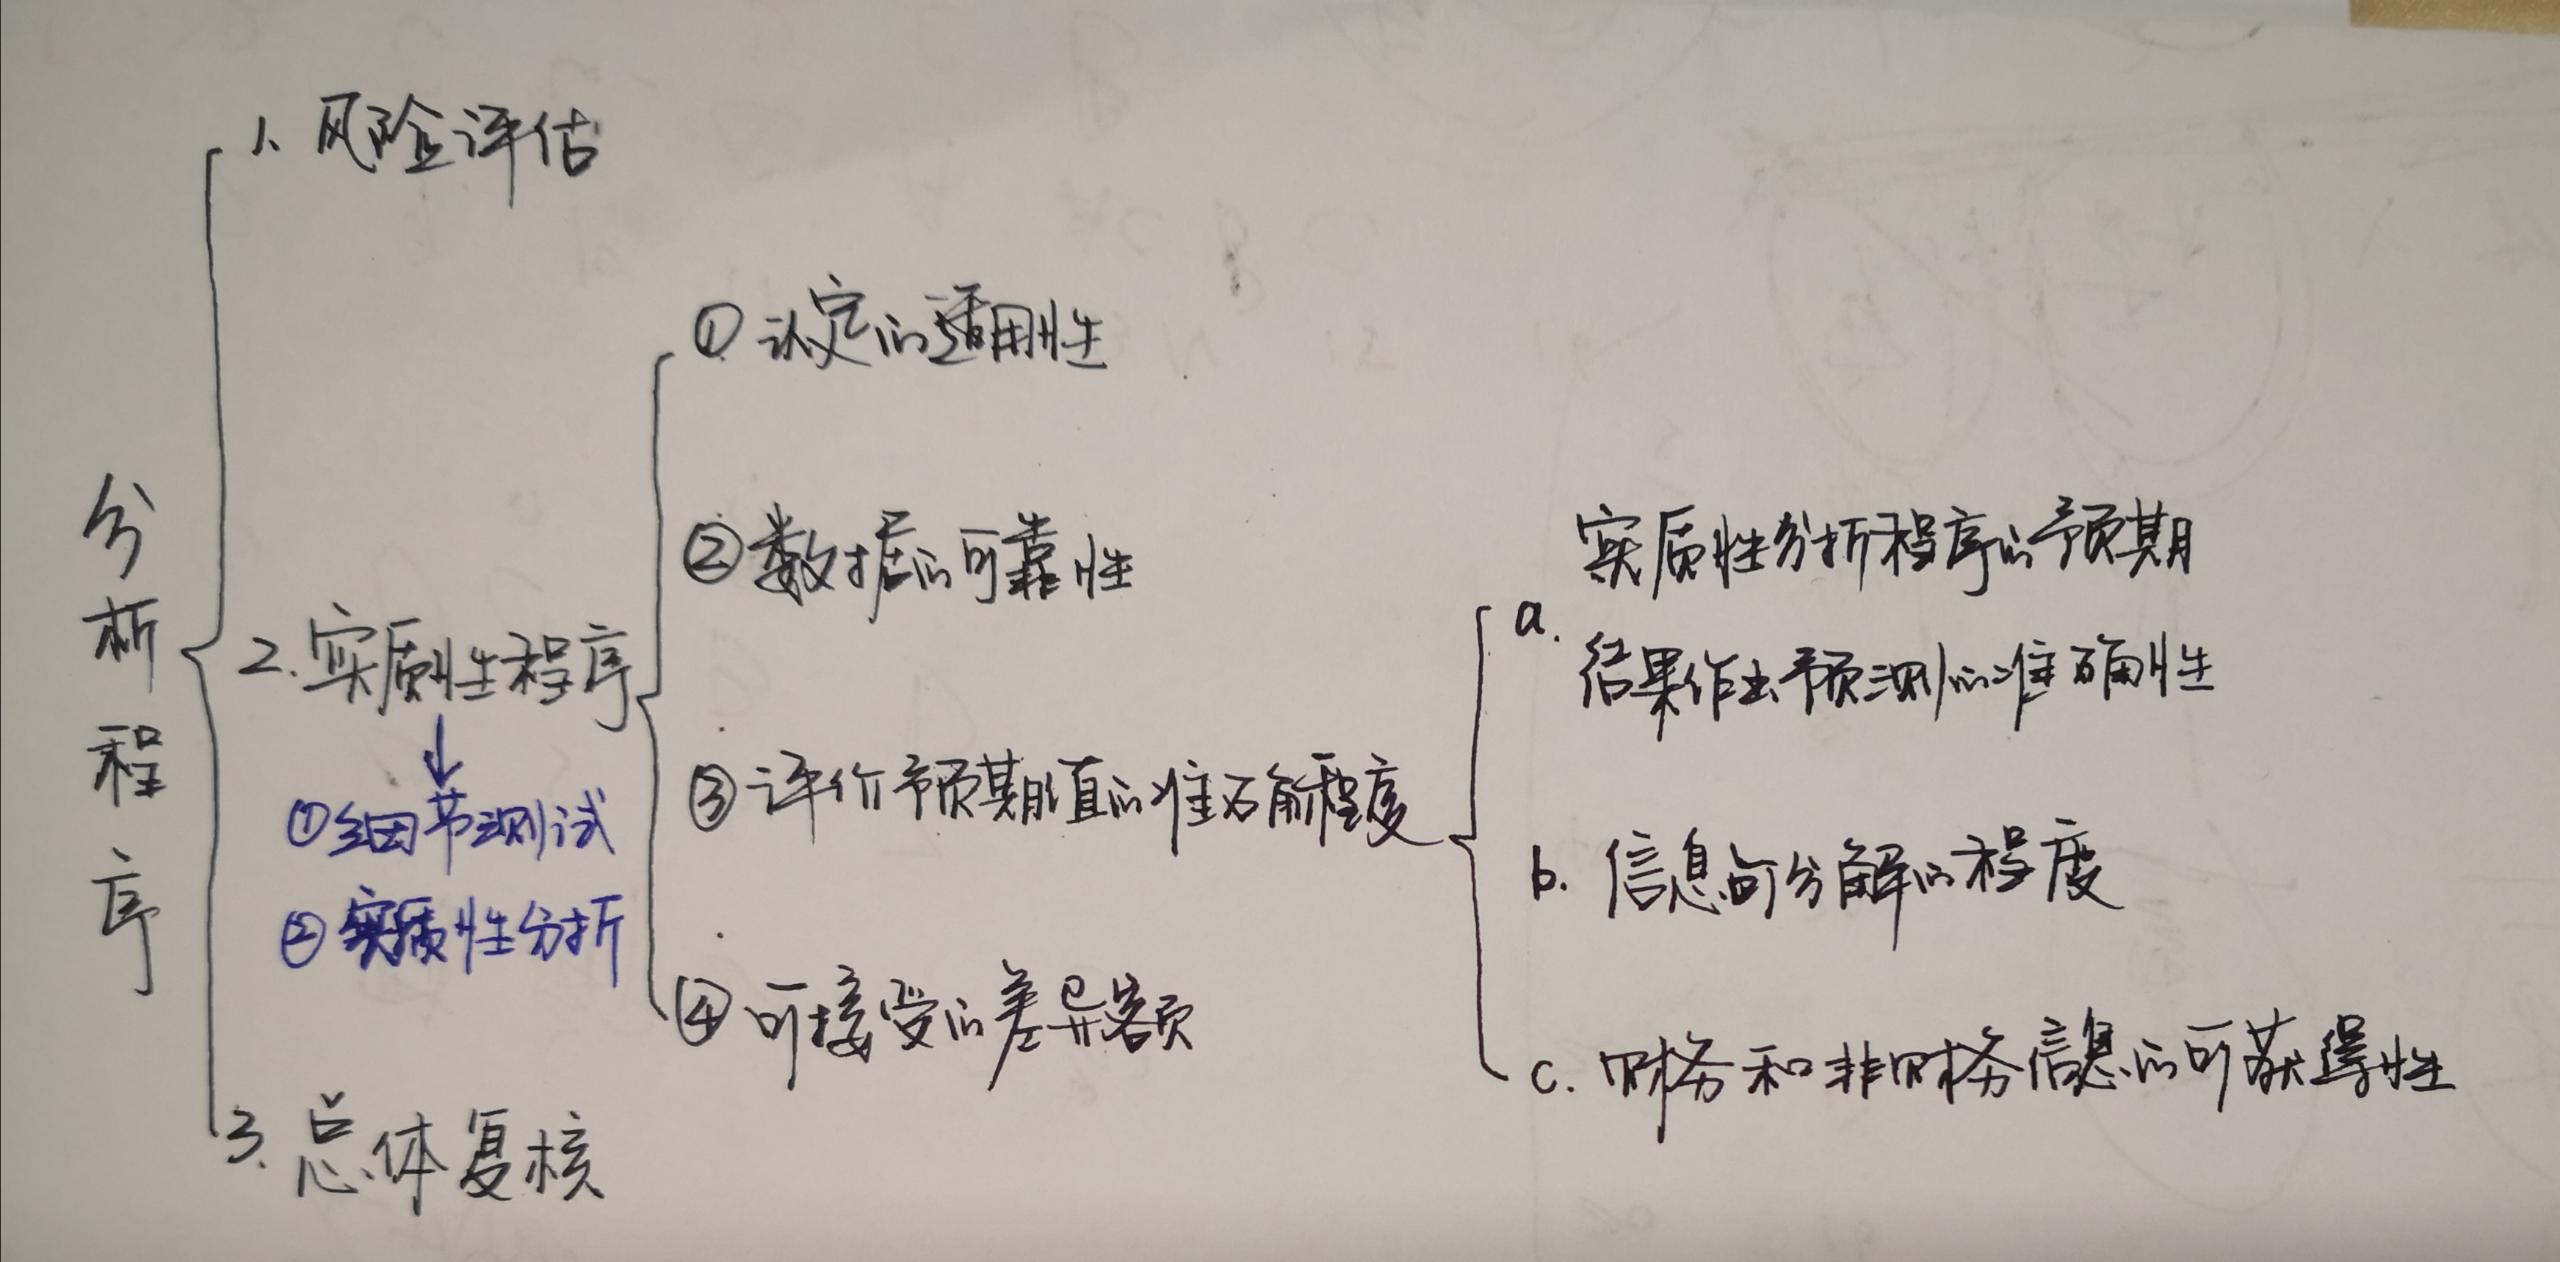 分析程序
1、风险评估
2.实质性程序
①细节测试
②实质性分析
3、总体复核
①认定的适用性
②数据的可靠性
③评价预期值的准确程度
④可接受的差异额
a.
实质性分析程序的预期
结果作出预测的准确性
b. 信息可分解的程度
c. 财务和非财务信息的可获得性